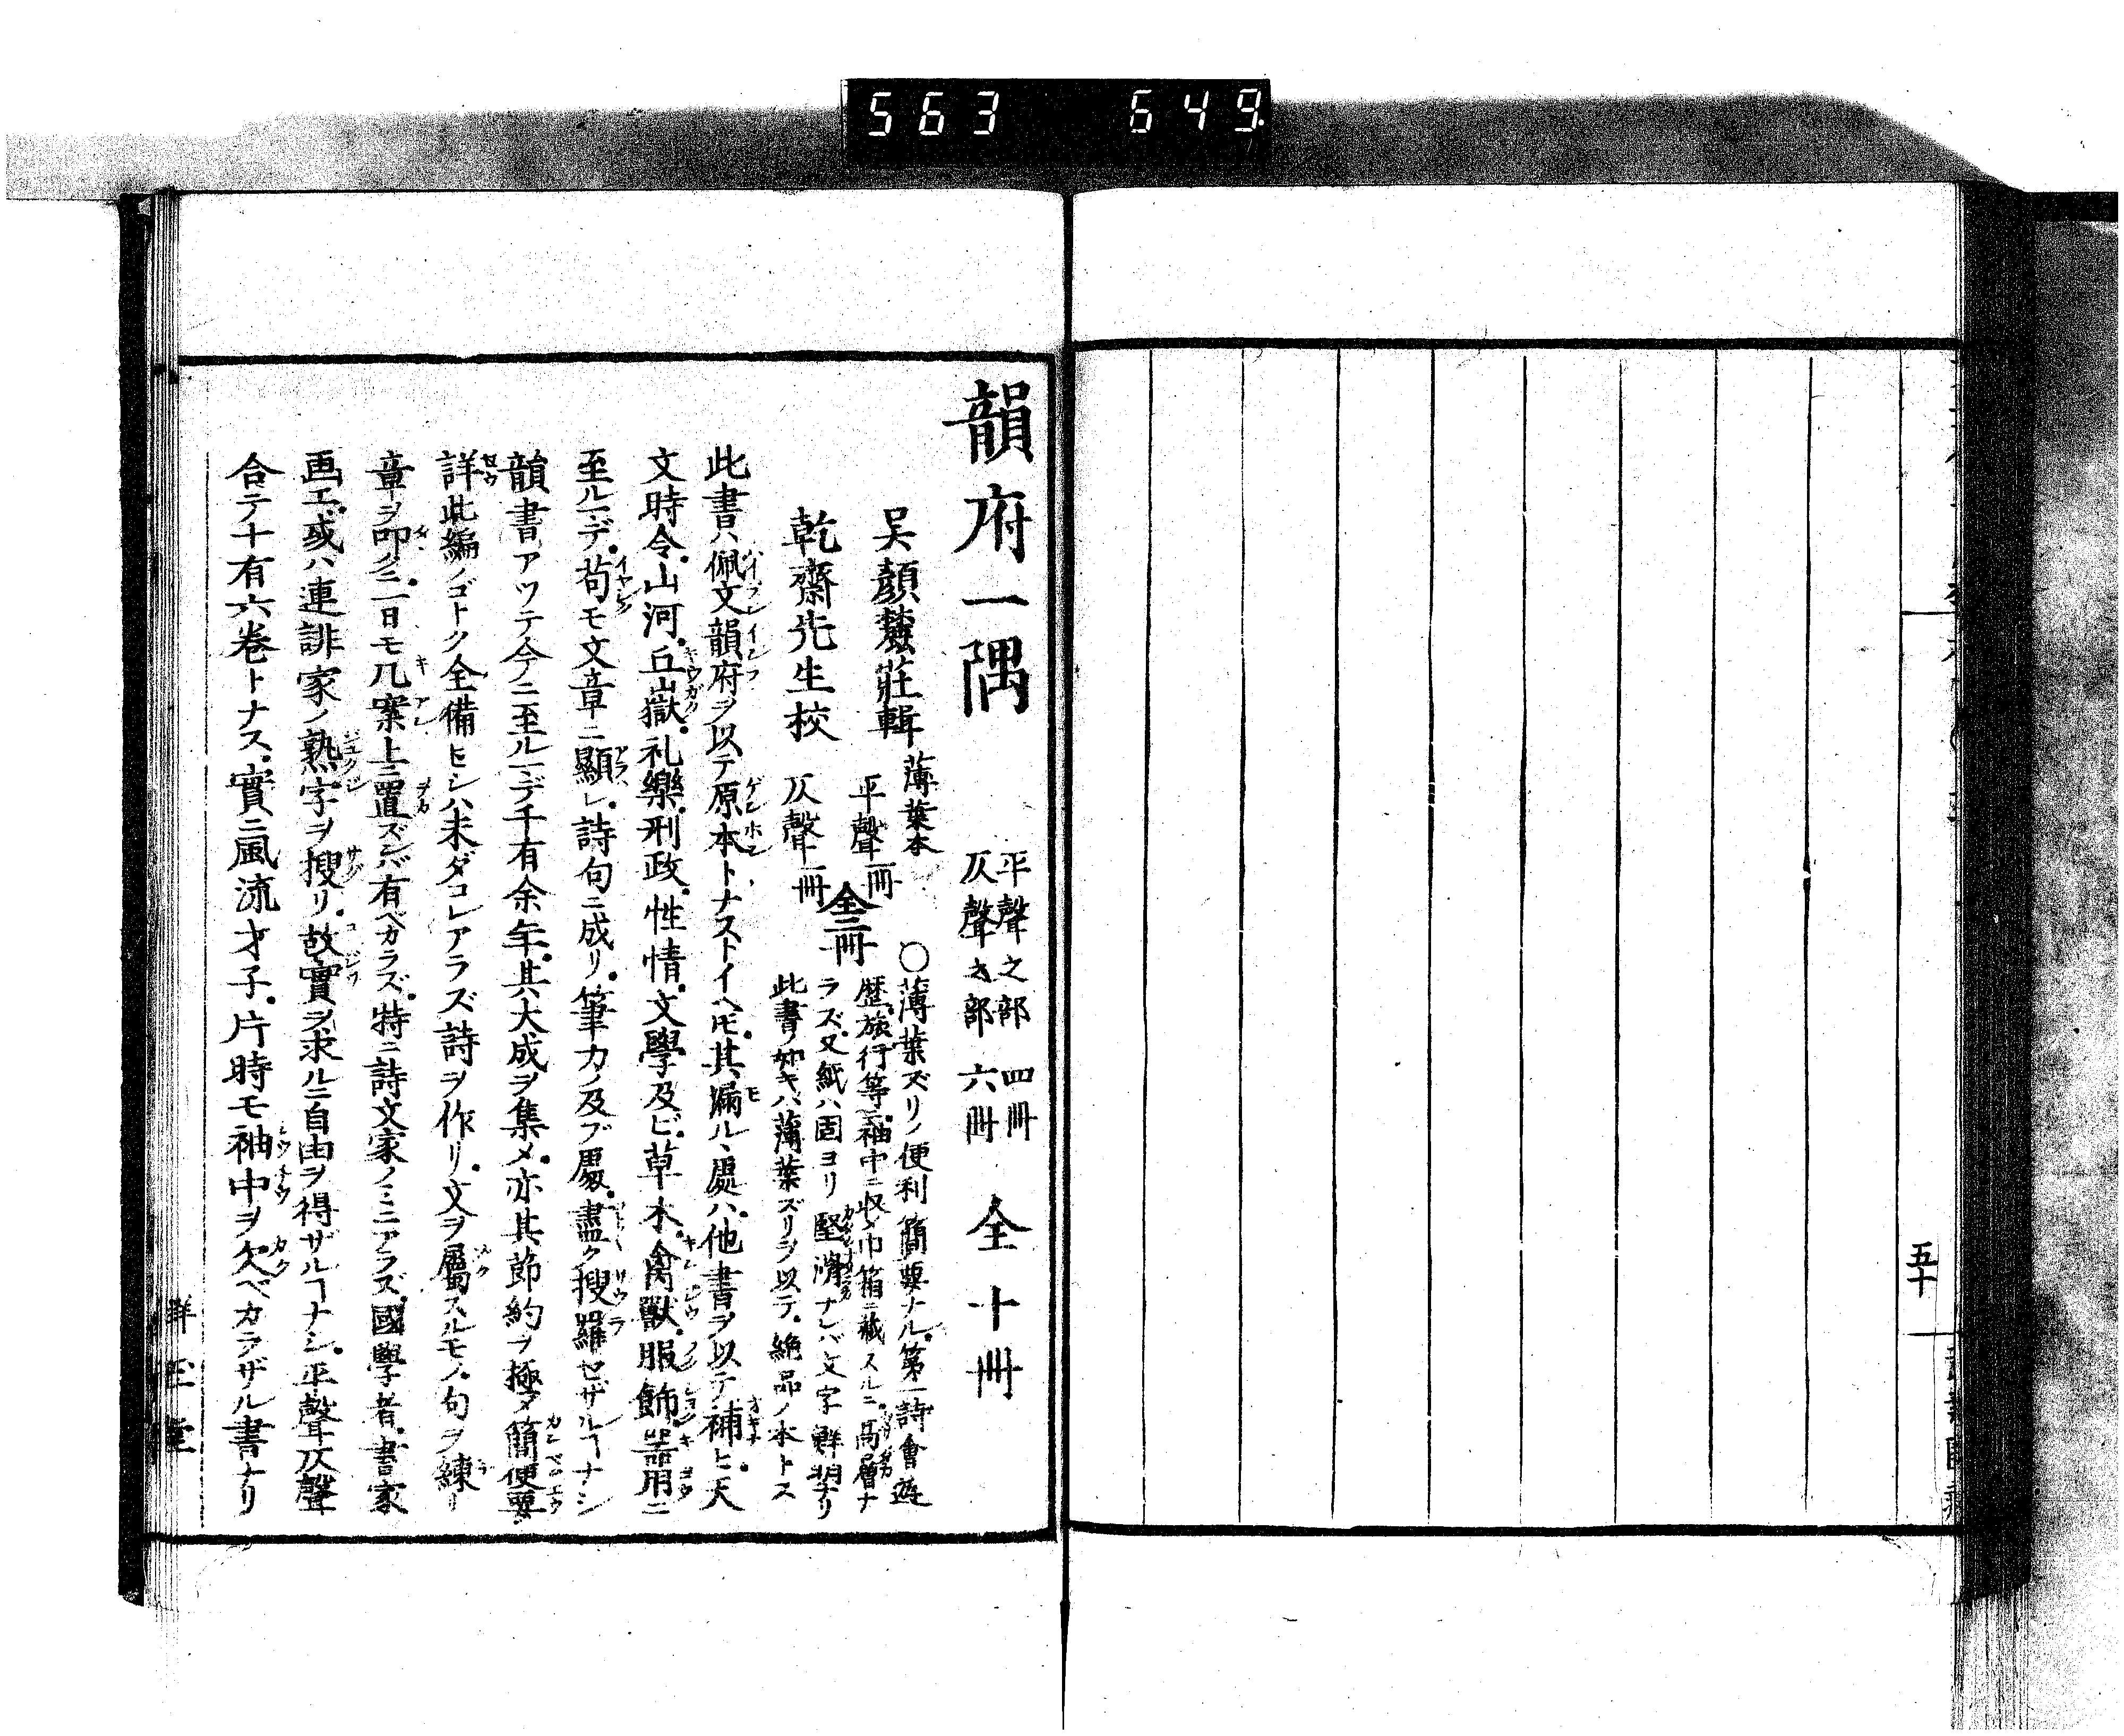 563 649
五十
韻府一隅
平聲之部 四冊
仄聲之部 六冊
全十冊
呉顔蘐莊輯
乾齋先生校
薄葉本
平聲一冊
仄聲一冊
全二冊
○薄葉ズリノ便利簡要ナル。第一詩會遊
歴。旅行等ニ。袖中ニ収メ巾箱ニ藏スルニ。高層ナ
ラズ。又紙ハ固ヨリ堅滑ナレバ文字鮮明ナリ
此書ノ如キハ薄葉ズリヲ以テ。絶品ノ本トス
此書ハ佩文韻府ヲ以テ原本トナストイヘ𪜈。其漏ル丶處ハ。他書ヲ以テ補ヒ。天
文時令。山河。丘嶽。礼樂。刑政。性情。文學及ビ。草木。禽獸。服飾器用ニ
至ルマデ。苟モ文章ニ顯レ。詩句ニ成リ。筆力ノ及ブ處。盡ク搜羅セザルヿナシ
韻書アツテ今ニ至ルマデ千有余年。其大成ヲ集メ。亦其節約ヲ極メ簡便要
詳此編ノゴトク全備セシハ未ダコレアラズ詩ヲ作リ。文ヲ屬スルモノ。句ヲ練リ
章ヲ叩クニ。一日モ几案上ニ置ズンバ有ベカラズ。特ニ詩文家ノミニアラズ。國學者。書家
画工。或ハ連誹家ノ熟字ヲ搜リ。故實ヲ求ルニ自由ヲ得ザルヿナシ。平聲仄聲
合テ十有六卷トナス。實ニ風流才子。片時モ袖中ヲ欠ベカラザル書ナリ
群玉堂